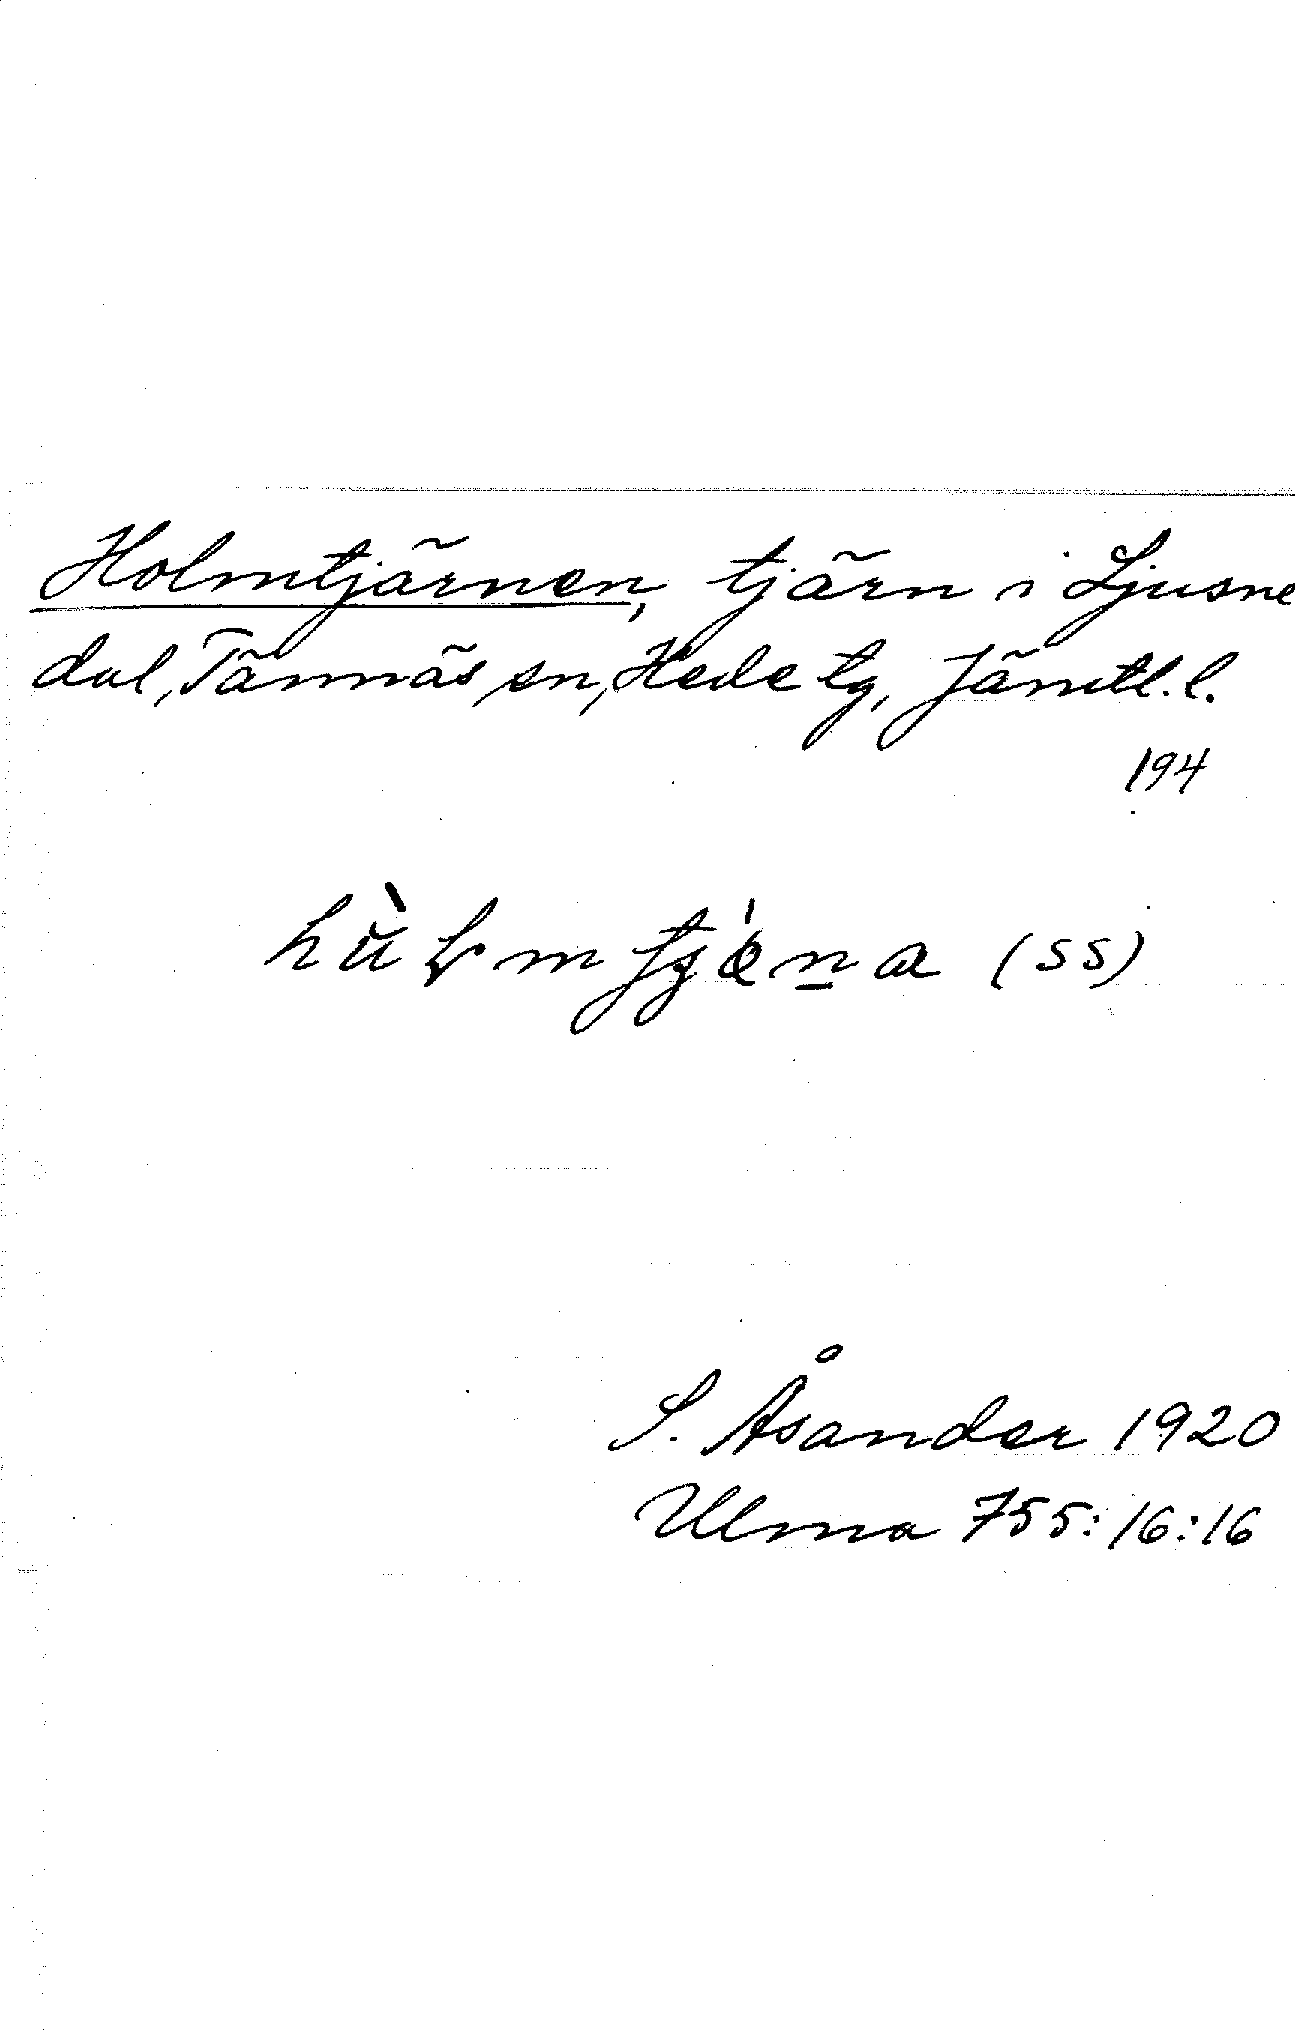 Holmtjärnen, tjärn i Ljusne
dal, Tännäs sn, Hede tg, Jämtl. l.
194
(SS)
S. Åsander 1920
Ulma 755:16:16